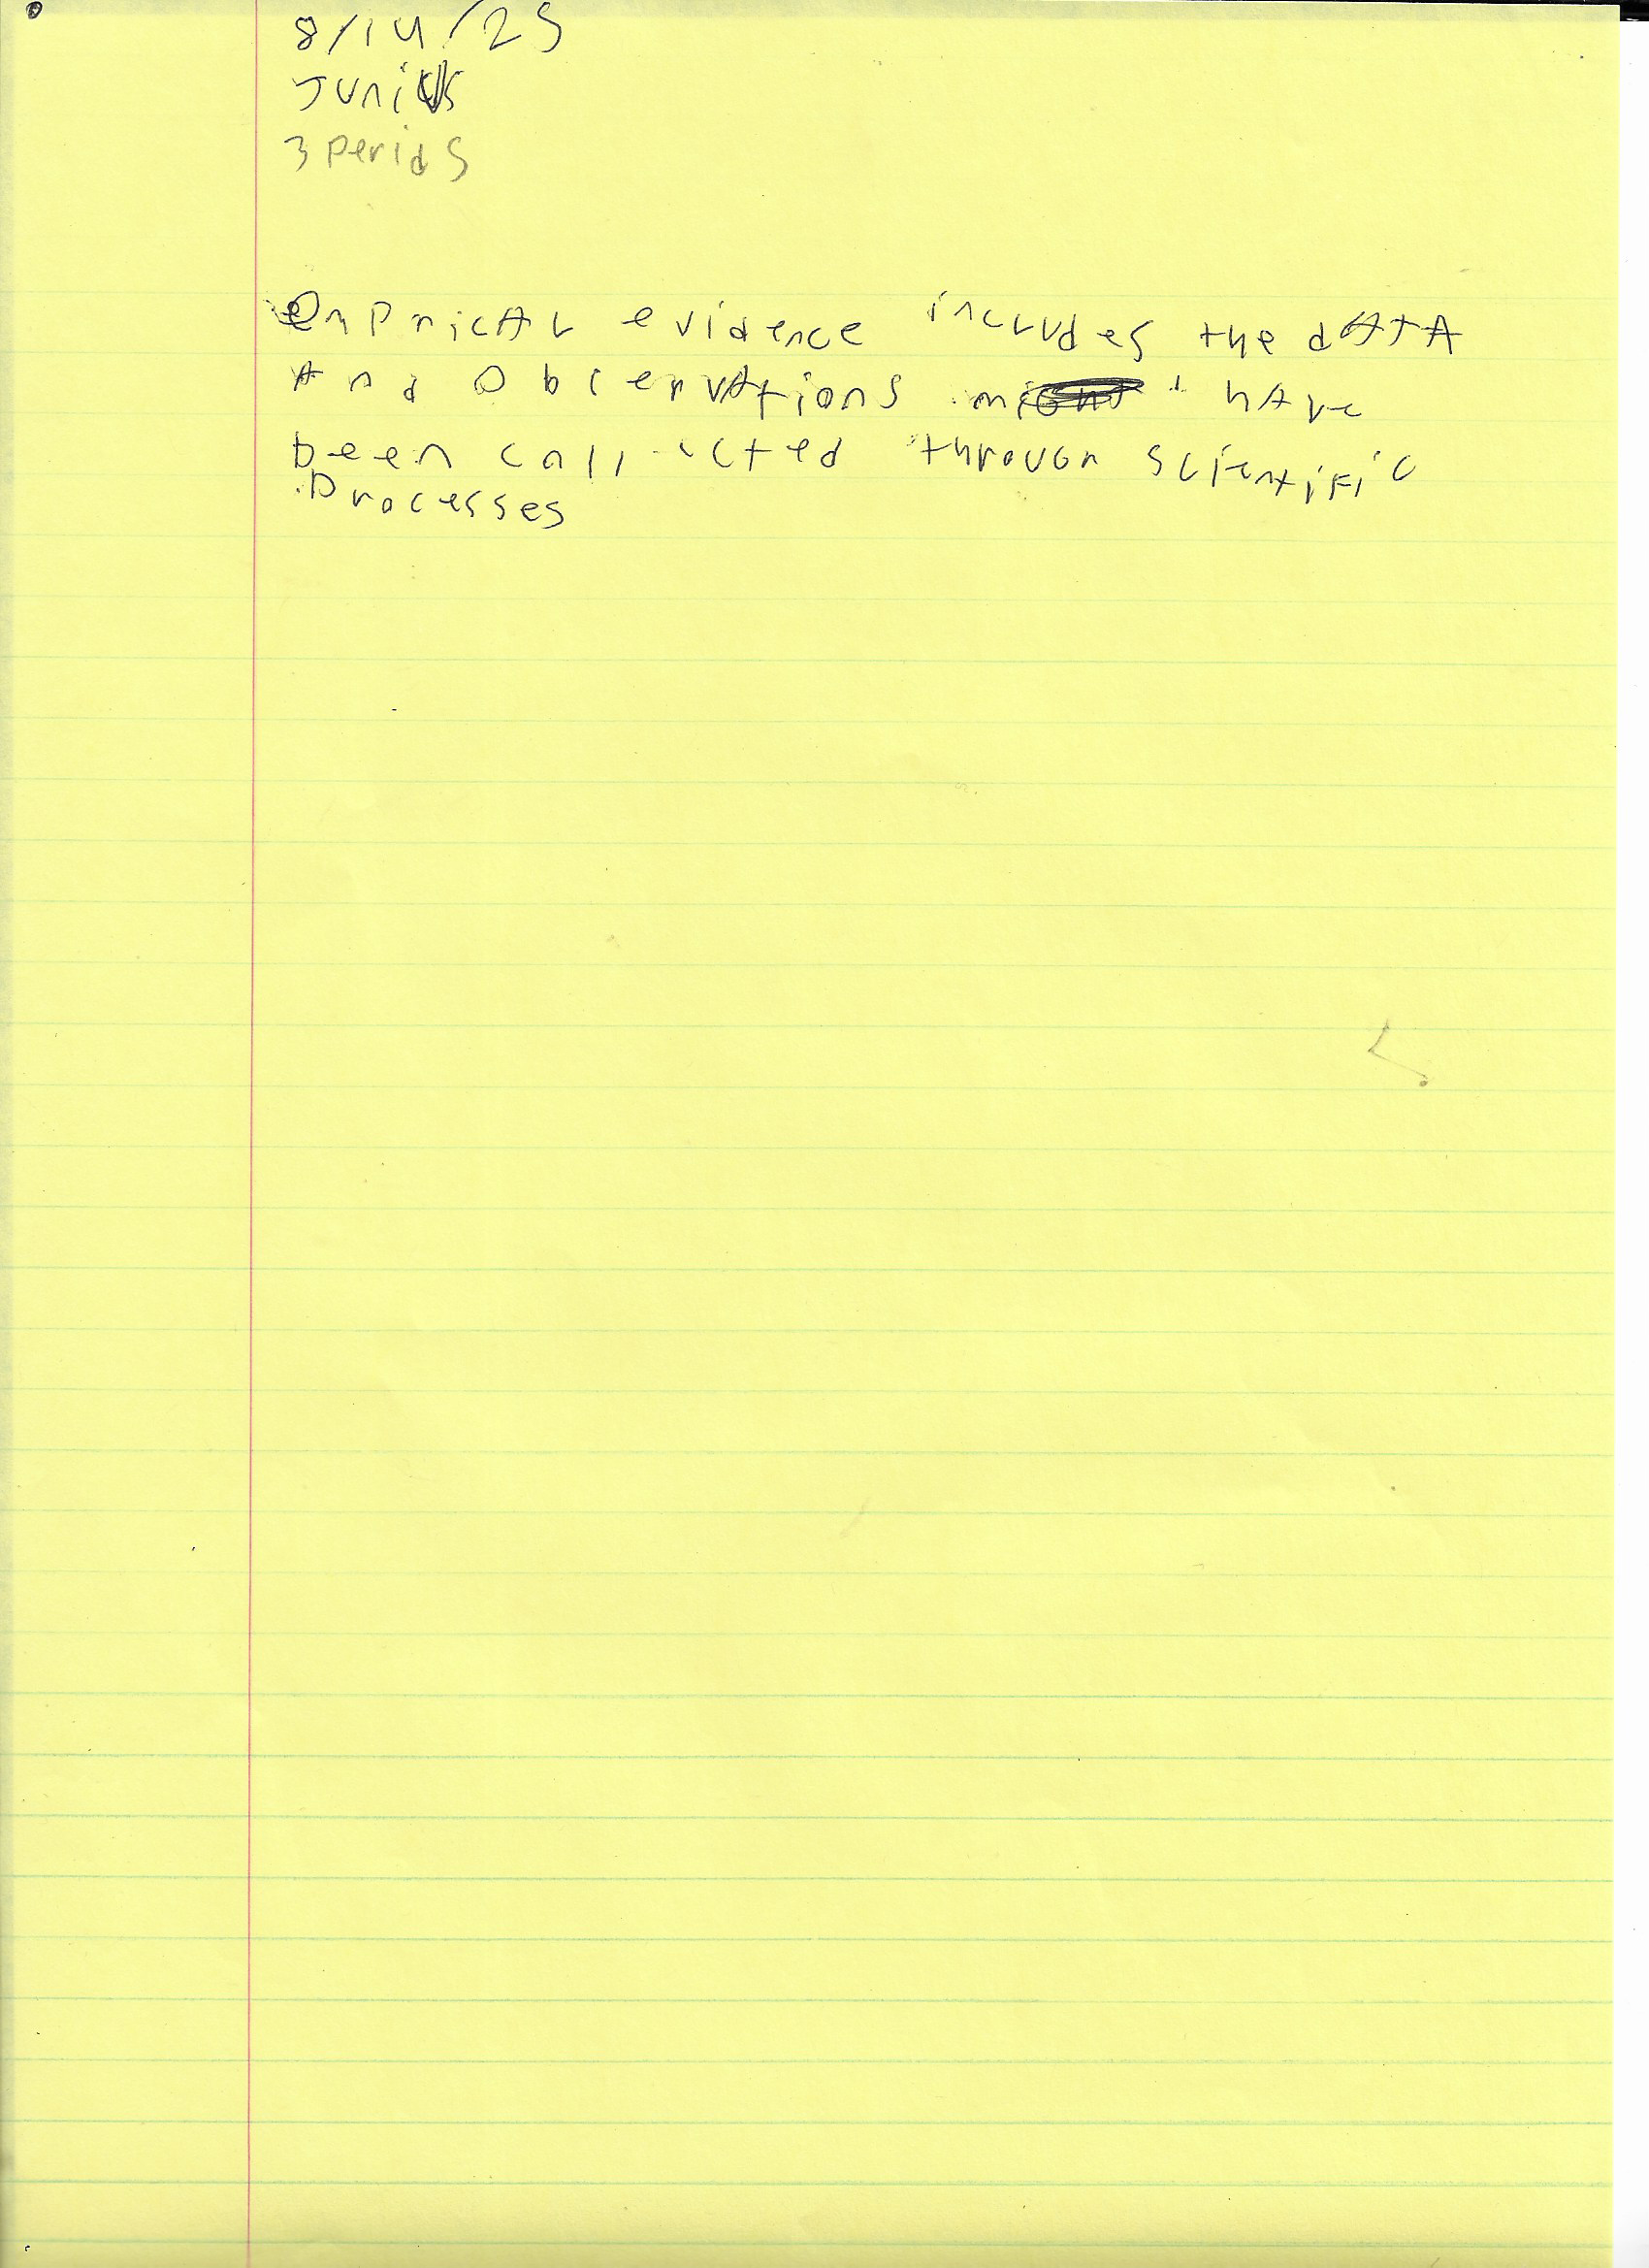 8/14/25
3 Perids
Emprical evidence includes the data
And Obcervations have
been collected through scientific
Processes